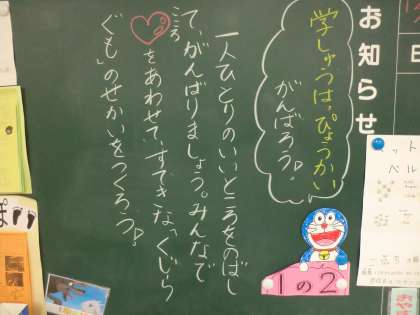 お知らせ
学しゅうはっぴょうかい
がんばろう!
一人ひとりのいいところをのばし
て、がんばりましょう。みんなで
こころ
をあわせて、すてきな「くじら
ぐも」のせかいをつくろう!
1の2
ット
ベル
ぽ